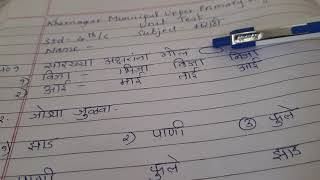 Khamagar Municipal Upper Primary
Unit Test
Std - 4th/c Subject मराठी
Name -
सारख्या अक्षरांना गोल
1) विजा - भिजा विजा विजा
2) आई - माई ताई आई
जोड्या जुळवा.
१) झाड २) पाणी ③ फुले
फुले झाड